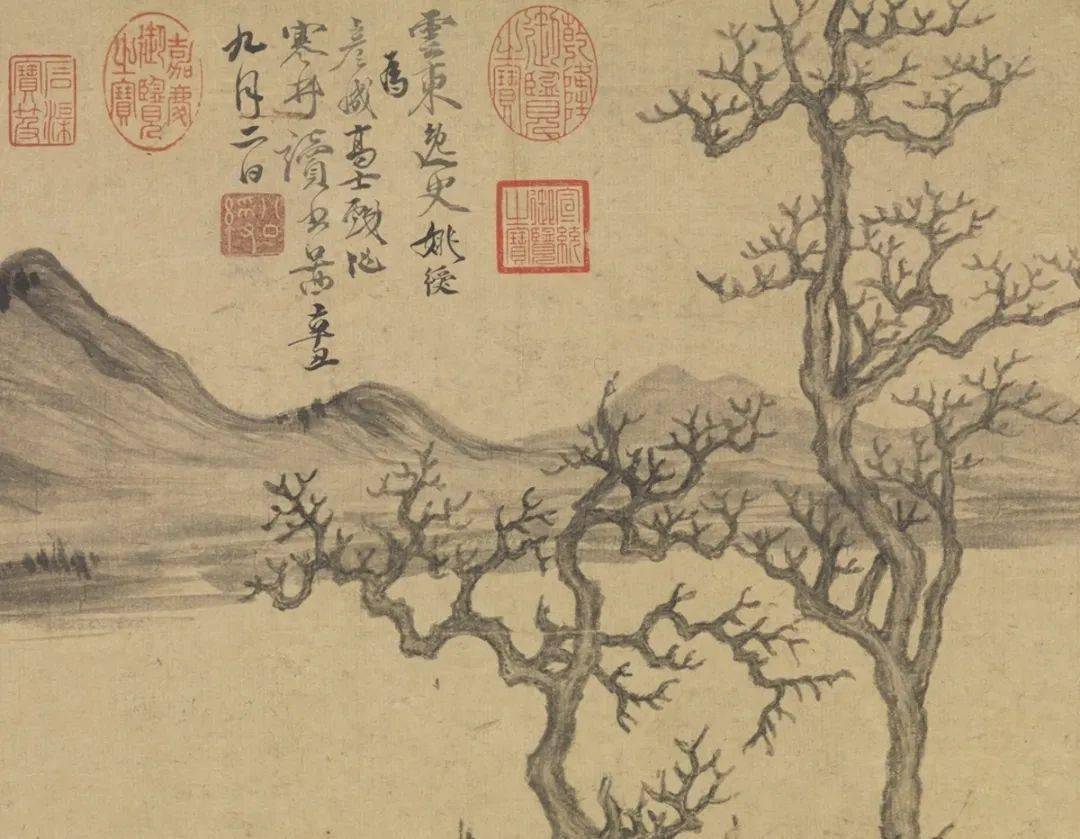 乾隆御覽之寶
宣統御覽之寶
雲東逸史姚綬
為
彥成高士戲作
寒林讀書景辛丑
九月二日
公綬
嘉慶御覽之寶
石渠寶笈